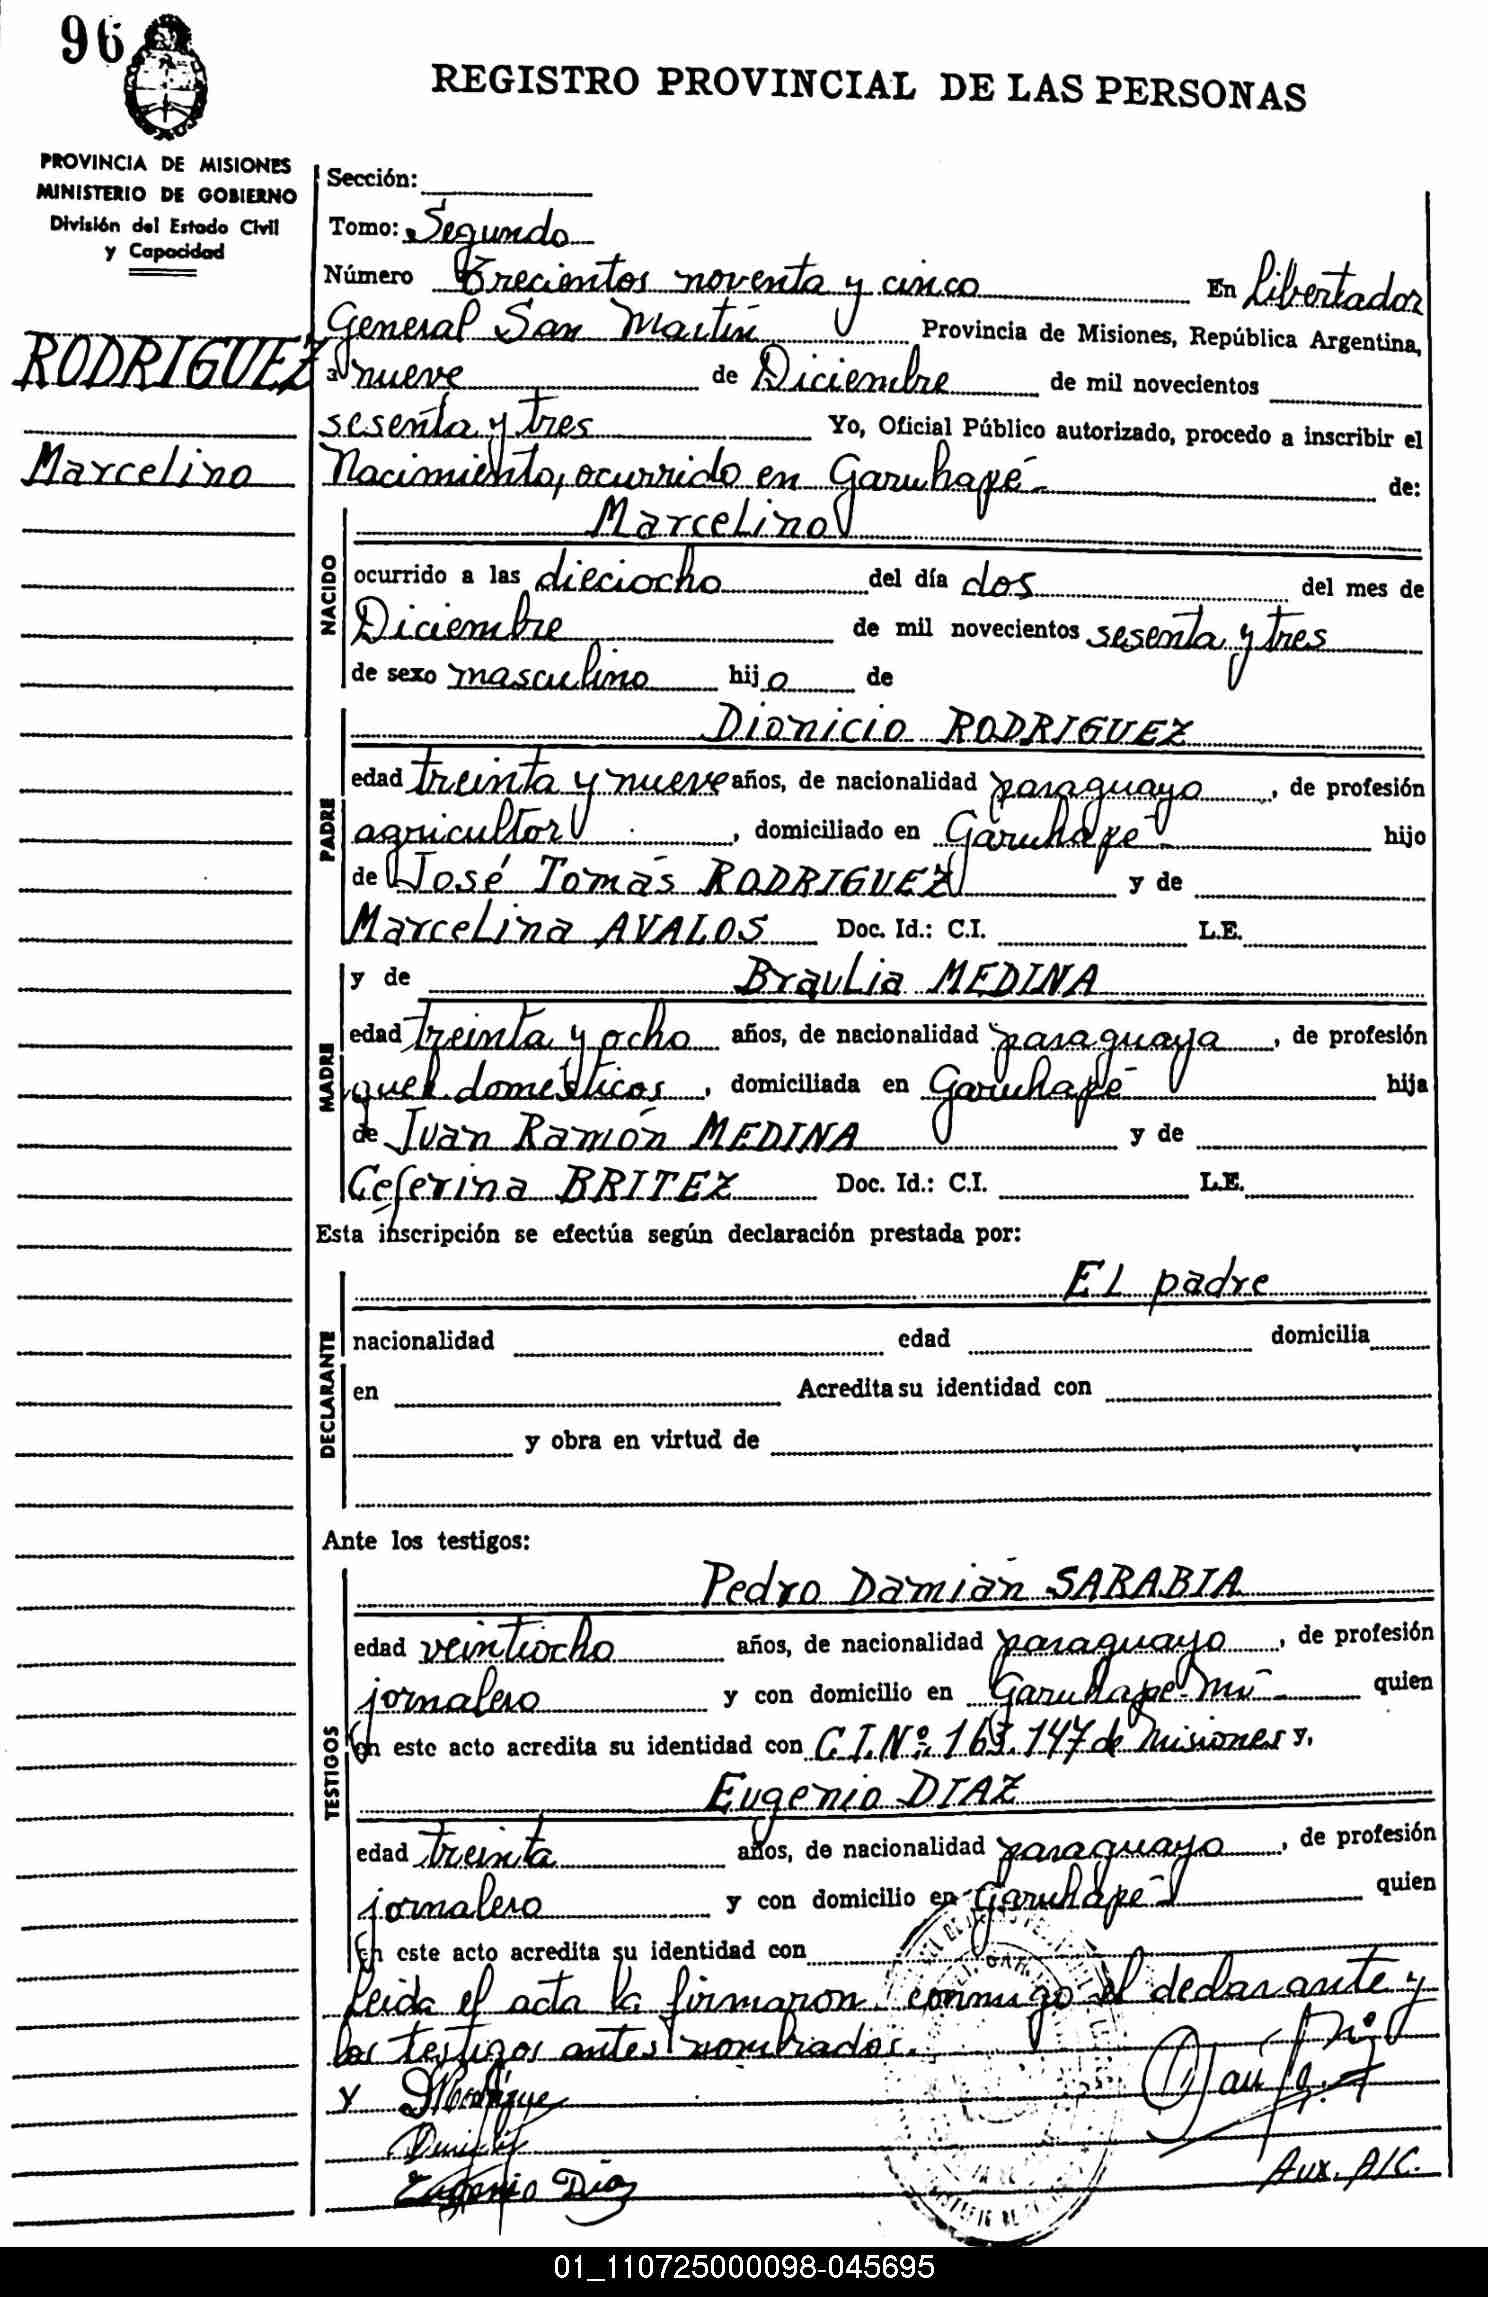 96
REGISTRO PROVINCIAL DE LAS PERSONAS
PROVINCIA DE MISIONES
MINISTERIO DE GOBIERNO
División del Estado Civil
y Capacidad
RODRIGUEZ
Marcelino
Sección:
Tomo: Segundo
Número Trecientos noventa y cinco En Libertador
General San Martín Provincia de Misiones, República Argentina,
a nueve de Diciembre de mil novecientos
sesenta y tres Yo, Oficial Público autorizado, procedo a inscribir el
Nacimiento, ocurrido en Garuhapé- de:
NACIDO
Marcelino
ocurrido a las dieciocho del día dos del mes de
Diciembre de mil novecientos sesenta y tres
de sexo masculino hijo de
PADRE
Dionicio RODRIGUEZ
edad treinta y nueve años, de nacionalidad paraguayo, de profesión
agricultor, domiciliado en Garuhapé- hijo
de José Tomás RODRIGUEZ y de
Marcelina AVALOS Doc. Id.: C.I. L.E.
MADRE
y de Braulia MEDINA
edad treinta y ocho años, de nacionalidad paraguaya, de profesión
queh. domésticos, domiciliada en Garuhapé- hija
de Juan Ramón MEDINA y de
Ceferina BRITEZ Doc. Id.: C.I. L.E.
Esta inscripción se efectúa según declaración prestada por:
DECLARANTE
El padre
nacionalidad edad domicilia
en Acredita su identidad con
y obra en virtud de
Ante los testigos:
TESTIGOS
Pedro Damián SARABIA
edad veintiocho años, de nacionalidad paraguayo, de profesión
jornalero y con domicilio en Garuhapé-Mí- quien
en este acto acredita su identidad con C.I.Nº: 163.147 de Misiones y,
Eugenio DIAZ
edad treinta años, de nacionalidad paraguayo, de profesión
jornalero y con domicilio en Garuhapé- quien
en este acto acredita su identidad con
Leida el acta la firmaron conmigo el declarante y
los testigos antes nombrados.
y
Eugenio Díaz
Aux. A/C.
01_110725000098-045695